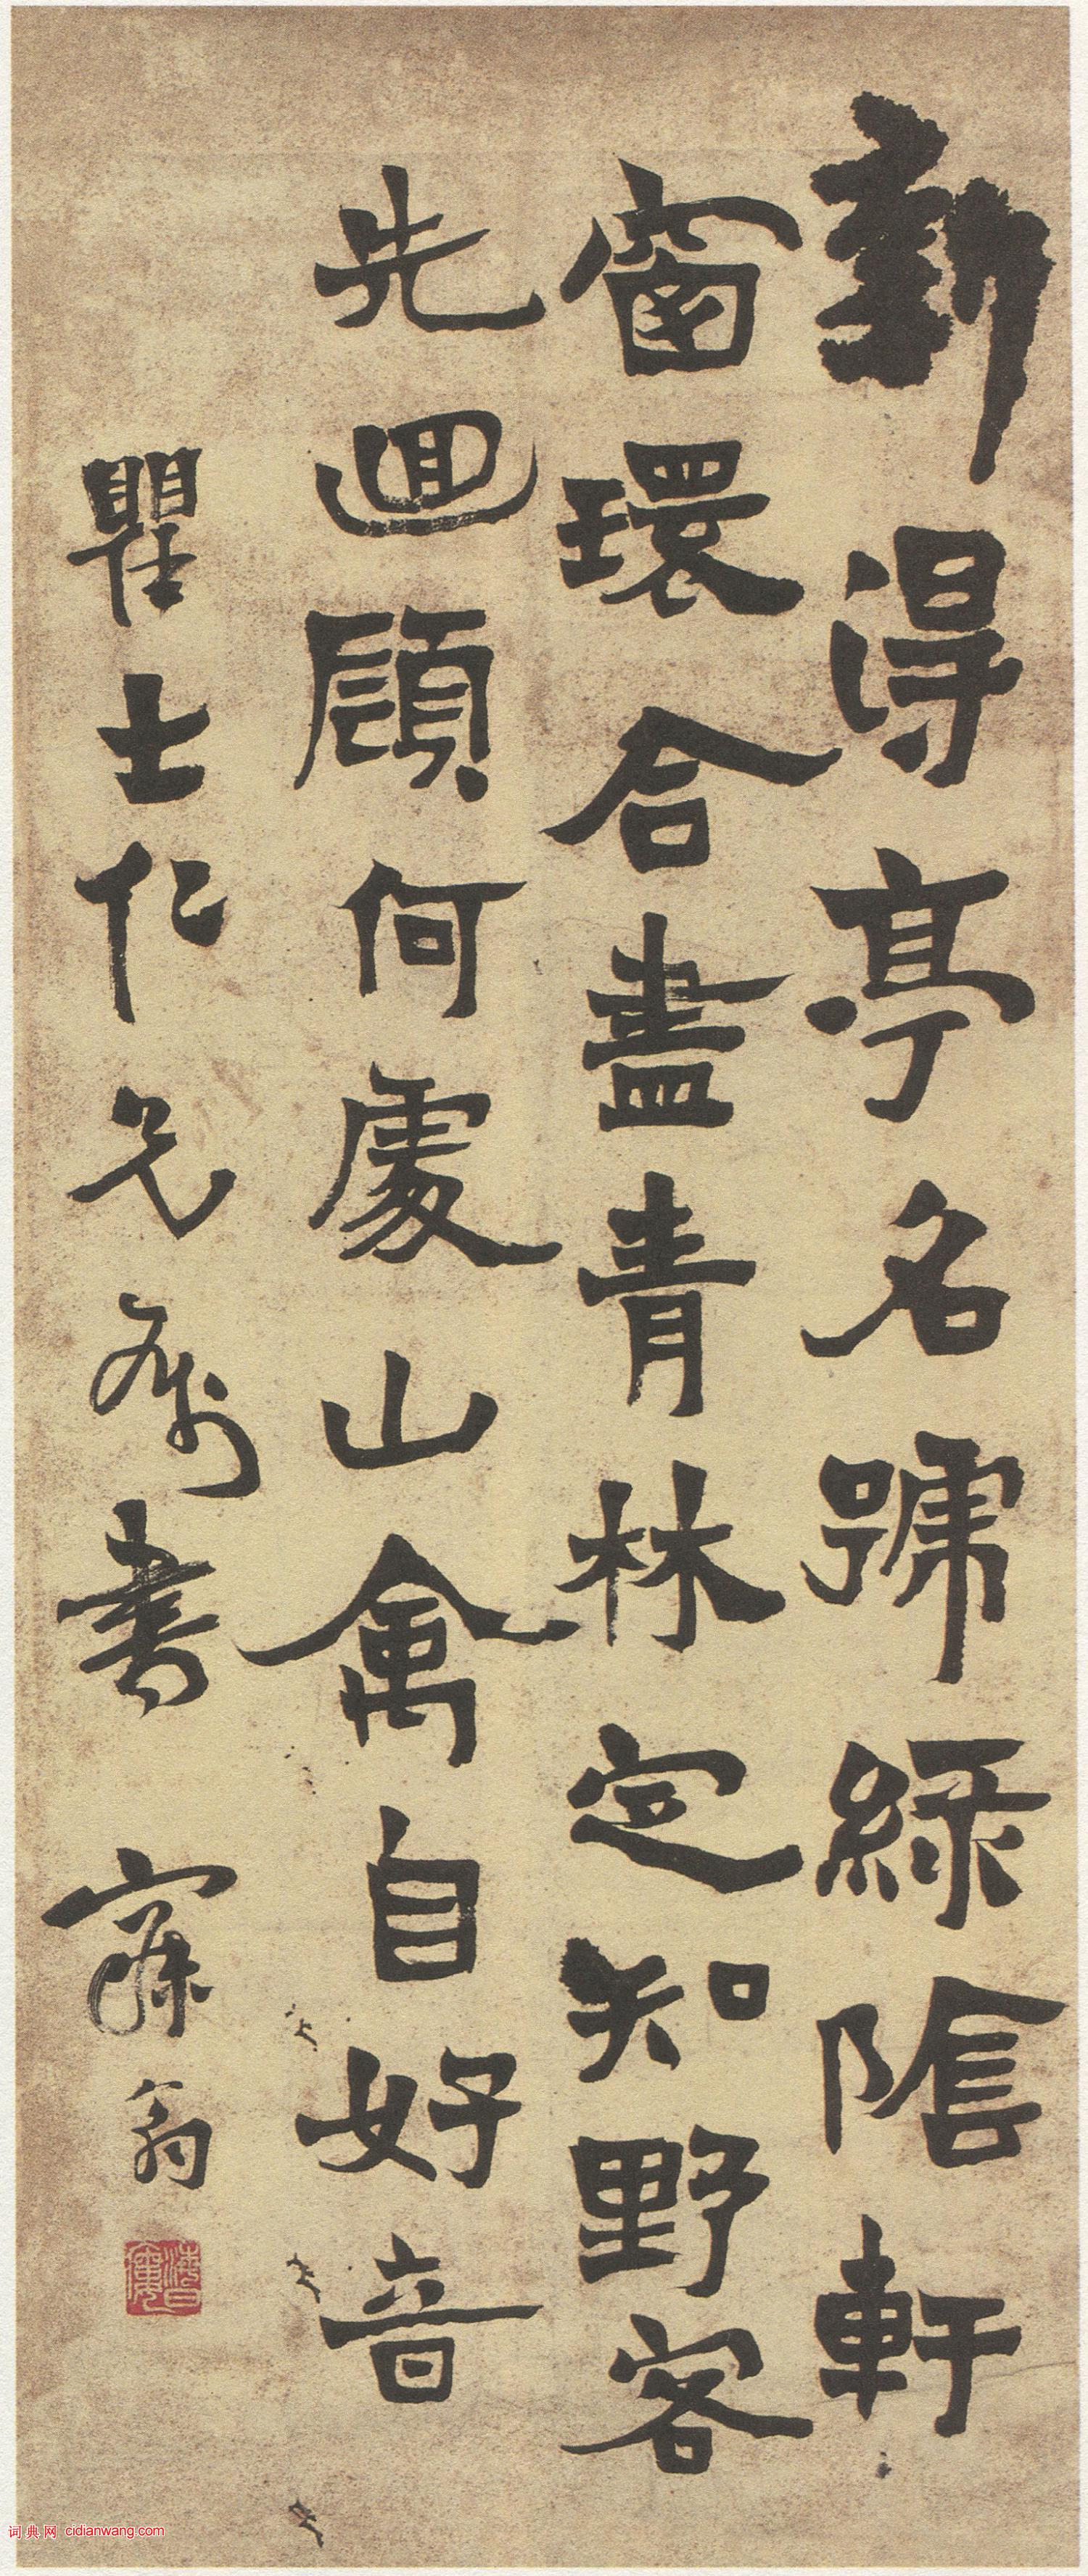 新得亭名號綠陰軒
窗環合盡青林定知野客
先迴顧何處山禽自好音
瞿士仁兄屬書 寐翁
词典网 cidianwang.com